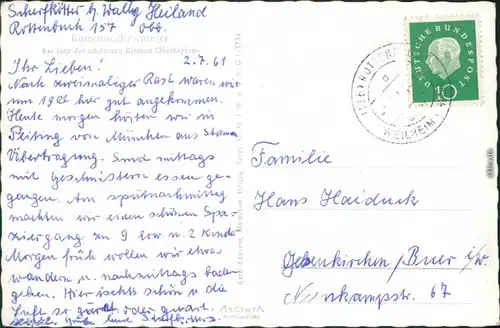 Scherfkötter b. Wally Heiland
Rottenbuch 157 Obb.
Rottenbuch/Ammer
hat eine der schönsten Kirchen Oberbayerns
2.7.61
Ihr Lieben!
Nach zweimaliger Rast waren wir
um 19 Uhr gut angekommen.
Heute morgen hörten wir in
Peiting von München aus
Übertragung. Sind mittags
mit Geschwistern essen ge-
gangen. Am spätnachmittag
machten wir einen schönen Spa-
ziergang zu 9 bzw. u. 2 Kinder
Morgen früh wollen wir etwas
wandern u. nachmittags baden
gehen. Hier ists schön u die
Luft so oder
Eure
ARGENTA
DEUTSCHE BUNDESPOST
10
WEILHEIM
Familie
Hans Haiduck
Gelsenkirchen/Buer i/W
Nienkampstr. 67